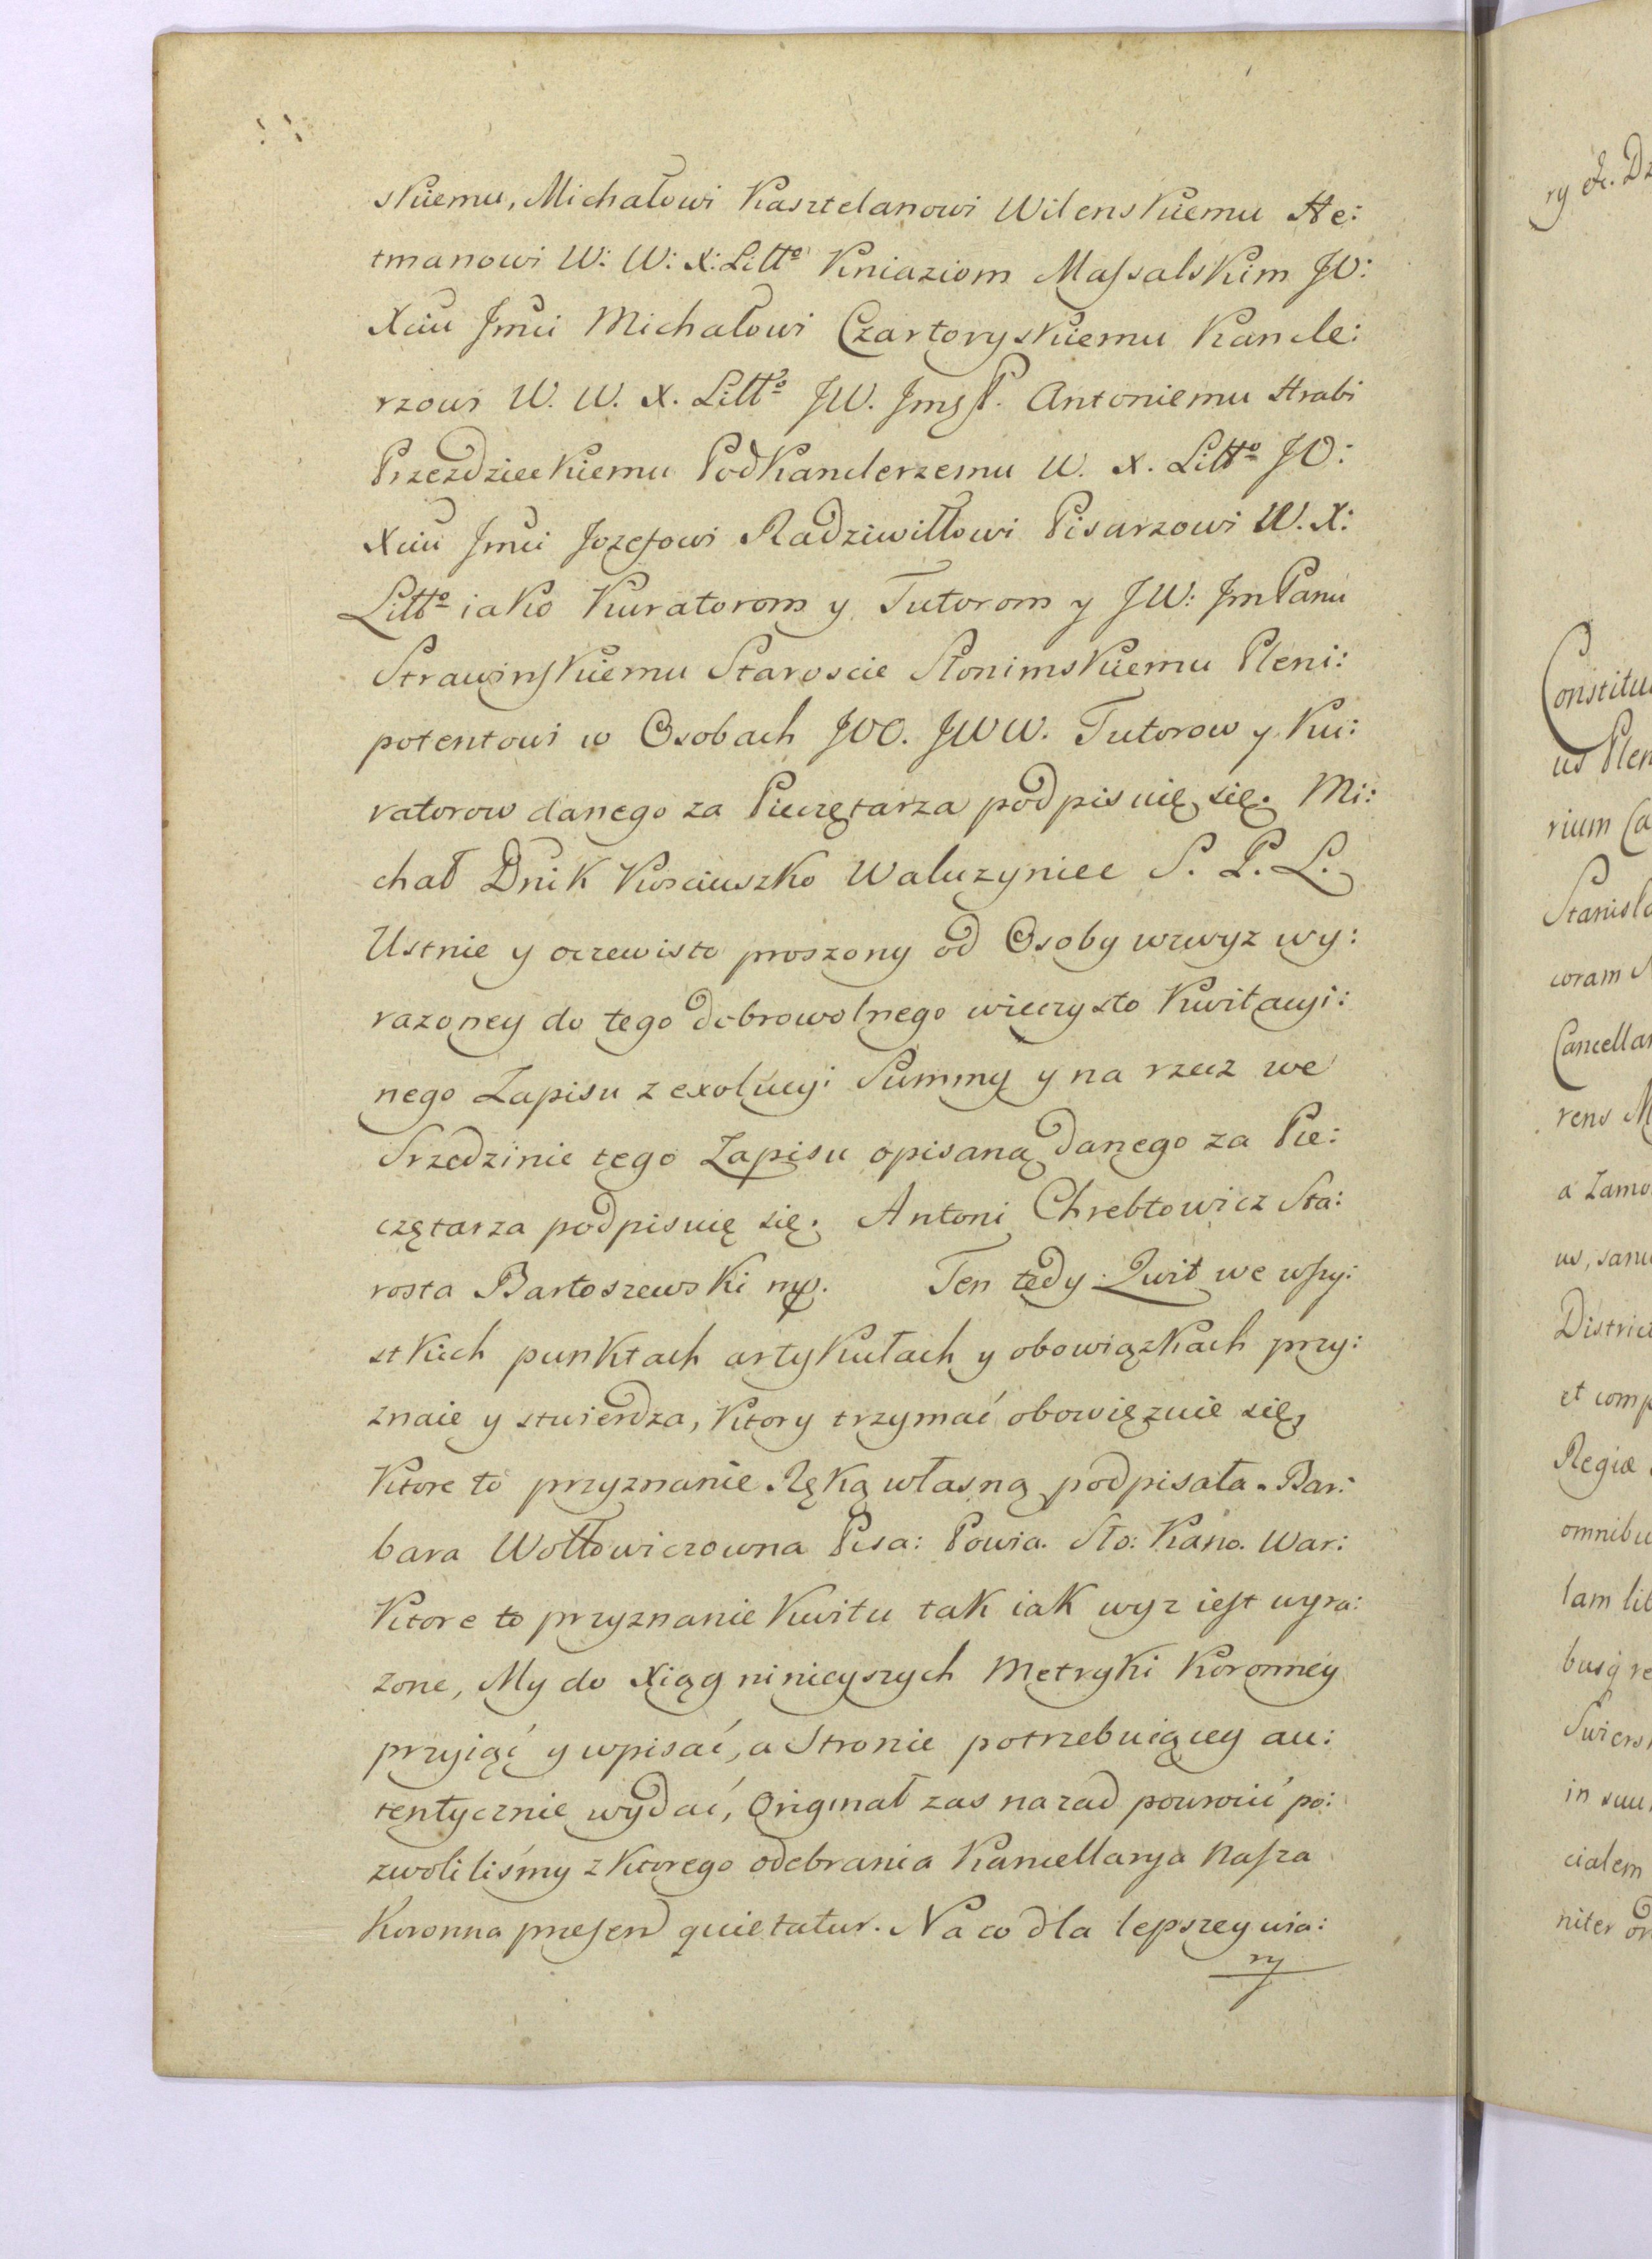 skiemu, Michałowi Kasztelanowi Wilenskiemu He:
tmanowi W: W: X: Litto Kniaziom Massalskim JO:
Xciu Jmci Michałowi Czartoryskiemu Kancle:
rzowi W. W. X. Litto JW. JmP. Antoniemu Hrabi
Przezdzieckiemu Podkanclerzemu W. X. Litto JO:
Xciu Jmci Jozefowi Radziwiłłowi Pisarzowi W. X:
Litto iako Kuratorom y Tutorom y JW: JmPanu
Strawinskiemu Staroscie Słonimskiemu Pleni:
potentowi w Osobach JOO. JWW. Tutorow y Ku:
ratorow danego za Pieczętarza podpisuię się. Mi:
chał Dnik Kosciuszko Waluzyniec S. P. L.
Ustnie y oczewisto proszony od Osoby wzwyz wy:
razoney do tego dobrowolnego wieczysto Kwitacyi:
nego Zapisu z exolucyi Summy y na rzecz we
Srzedzinie tego Zapisu opisaną danego za Pie:
czętarza podpisuię się. Antoni Chrebtowicz Sta:
rosta Bartoszewski mp. Ten tedy Qwit we wszy:
stkich punktach artykułach y obowiązkach przy:
znaie y stwierdza, ktory trzymać obowięzuie się,
Ktore to przyznanie Ręką własną podpisała. Bar:
bara Wołłowiczowna Pisa: Powia. Sło: Kano. War:
Ktore to przyznanie Kwitu tak iak wyz iest wyra:
zone, My do Xiąg ninieyszych Metryki Koronney
przyiąć y wpisać, a Stronie potrzebuiącey au:
tentycznie wydać, Originał zas nazad powrocić po:
zwoliliśmy z ktorego odebrania Kancellarya Nasza
Koronna presend quietatur. Na co dla lepszey wia:
ry
ry
Constitu
us Plen
rium Ca
Stanisla
coram
Cancellar
rens M
a Zamo
us,
District
et comp
Regiæ
omnibu
lam lit
busq re
Swiers
in suu
cialem
niter